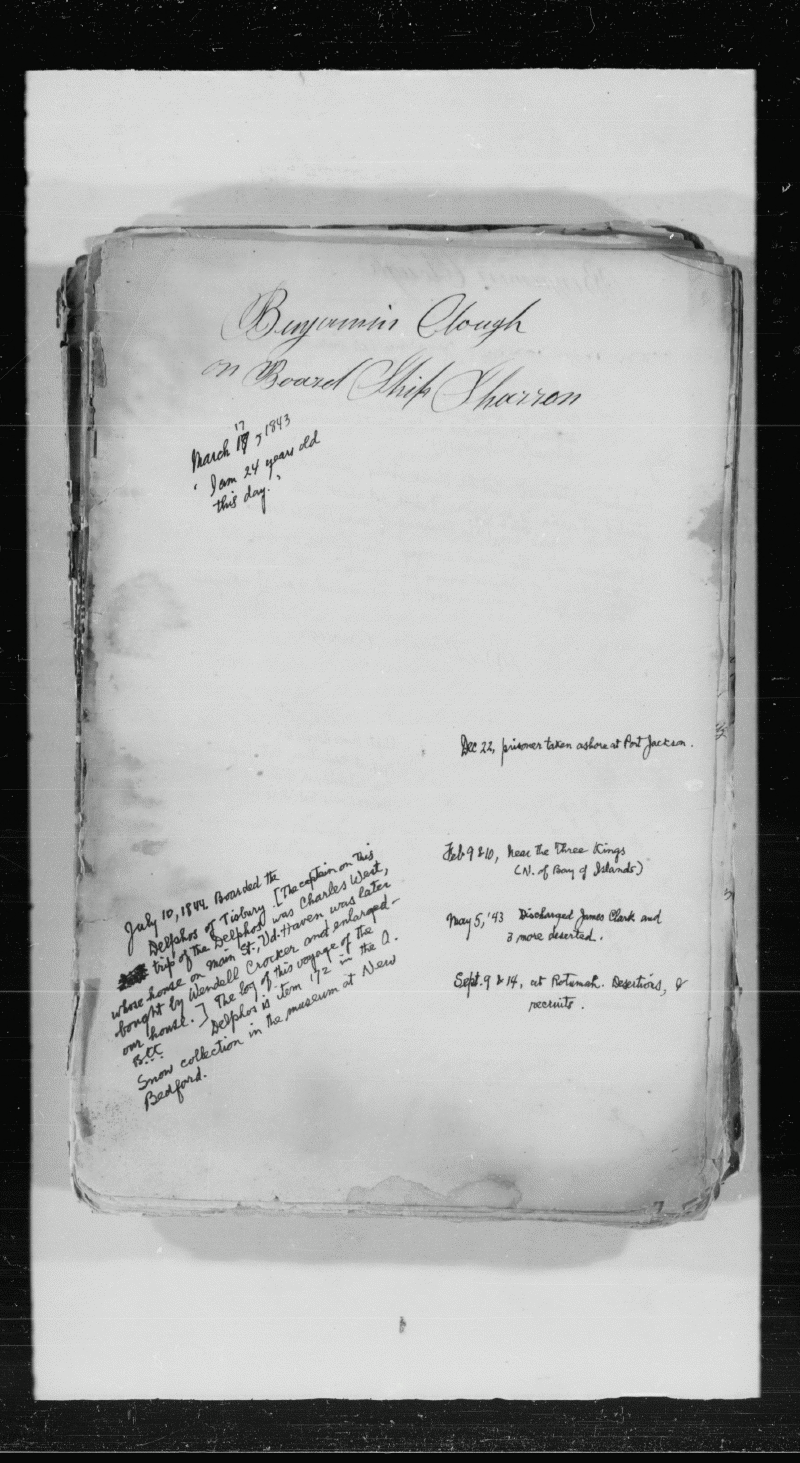 Benjamin Clough
on Board Ship Sharron
17
March 17, 1843
"I am 24 years old
this day."
Dec 22, prisoner taken ashore at Port Jackson.
Feb 9 & 10, Near the Three Kings
(N. of Bay of Islands)
May 5, '43 Discharged James Clark and
3 more deserted.
Sept. 9 & 14, at Rotumah. Desertions, &
recruits.
July 10, 1844. Boarded the
Delphos of Tisbury. [The captain on this
trip of the Delphos was Charles West,
whose house on Main St., Vd. Haven was later
bought by Wendell Crocker and enlarged -
our house.] The log of this voyage of the
Delphos is item 172 in the A.
Snow collection in the museum at New
Bedford.